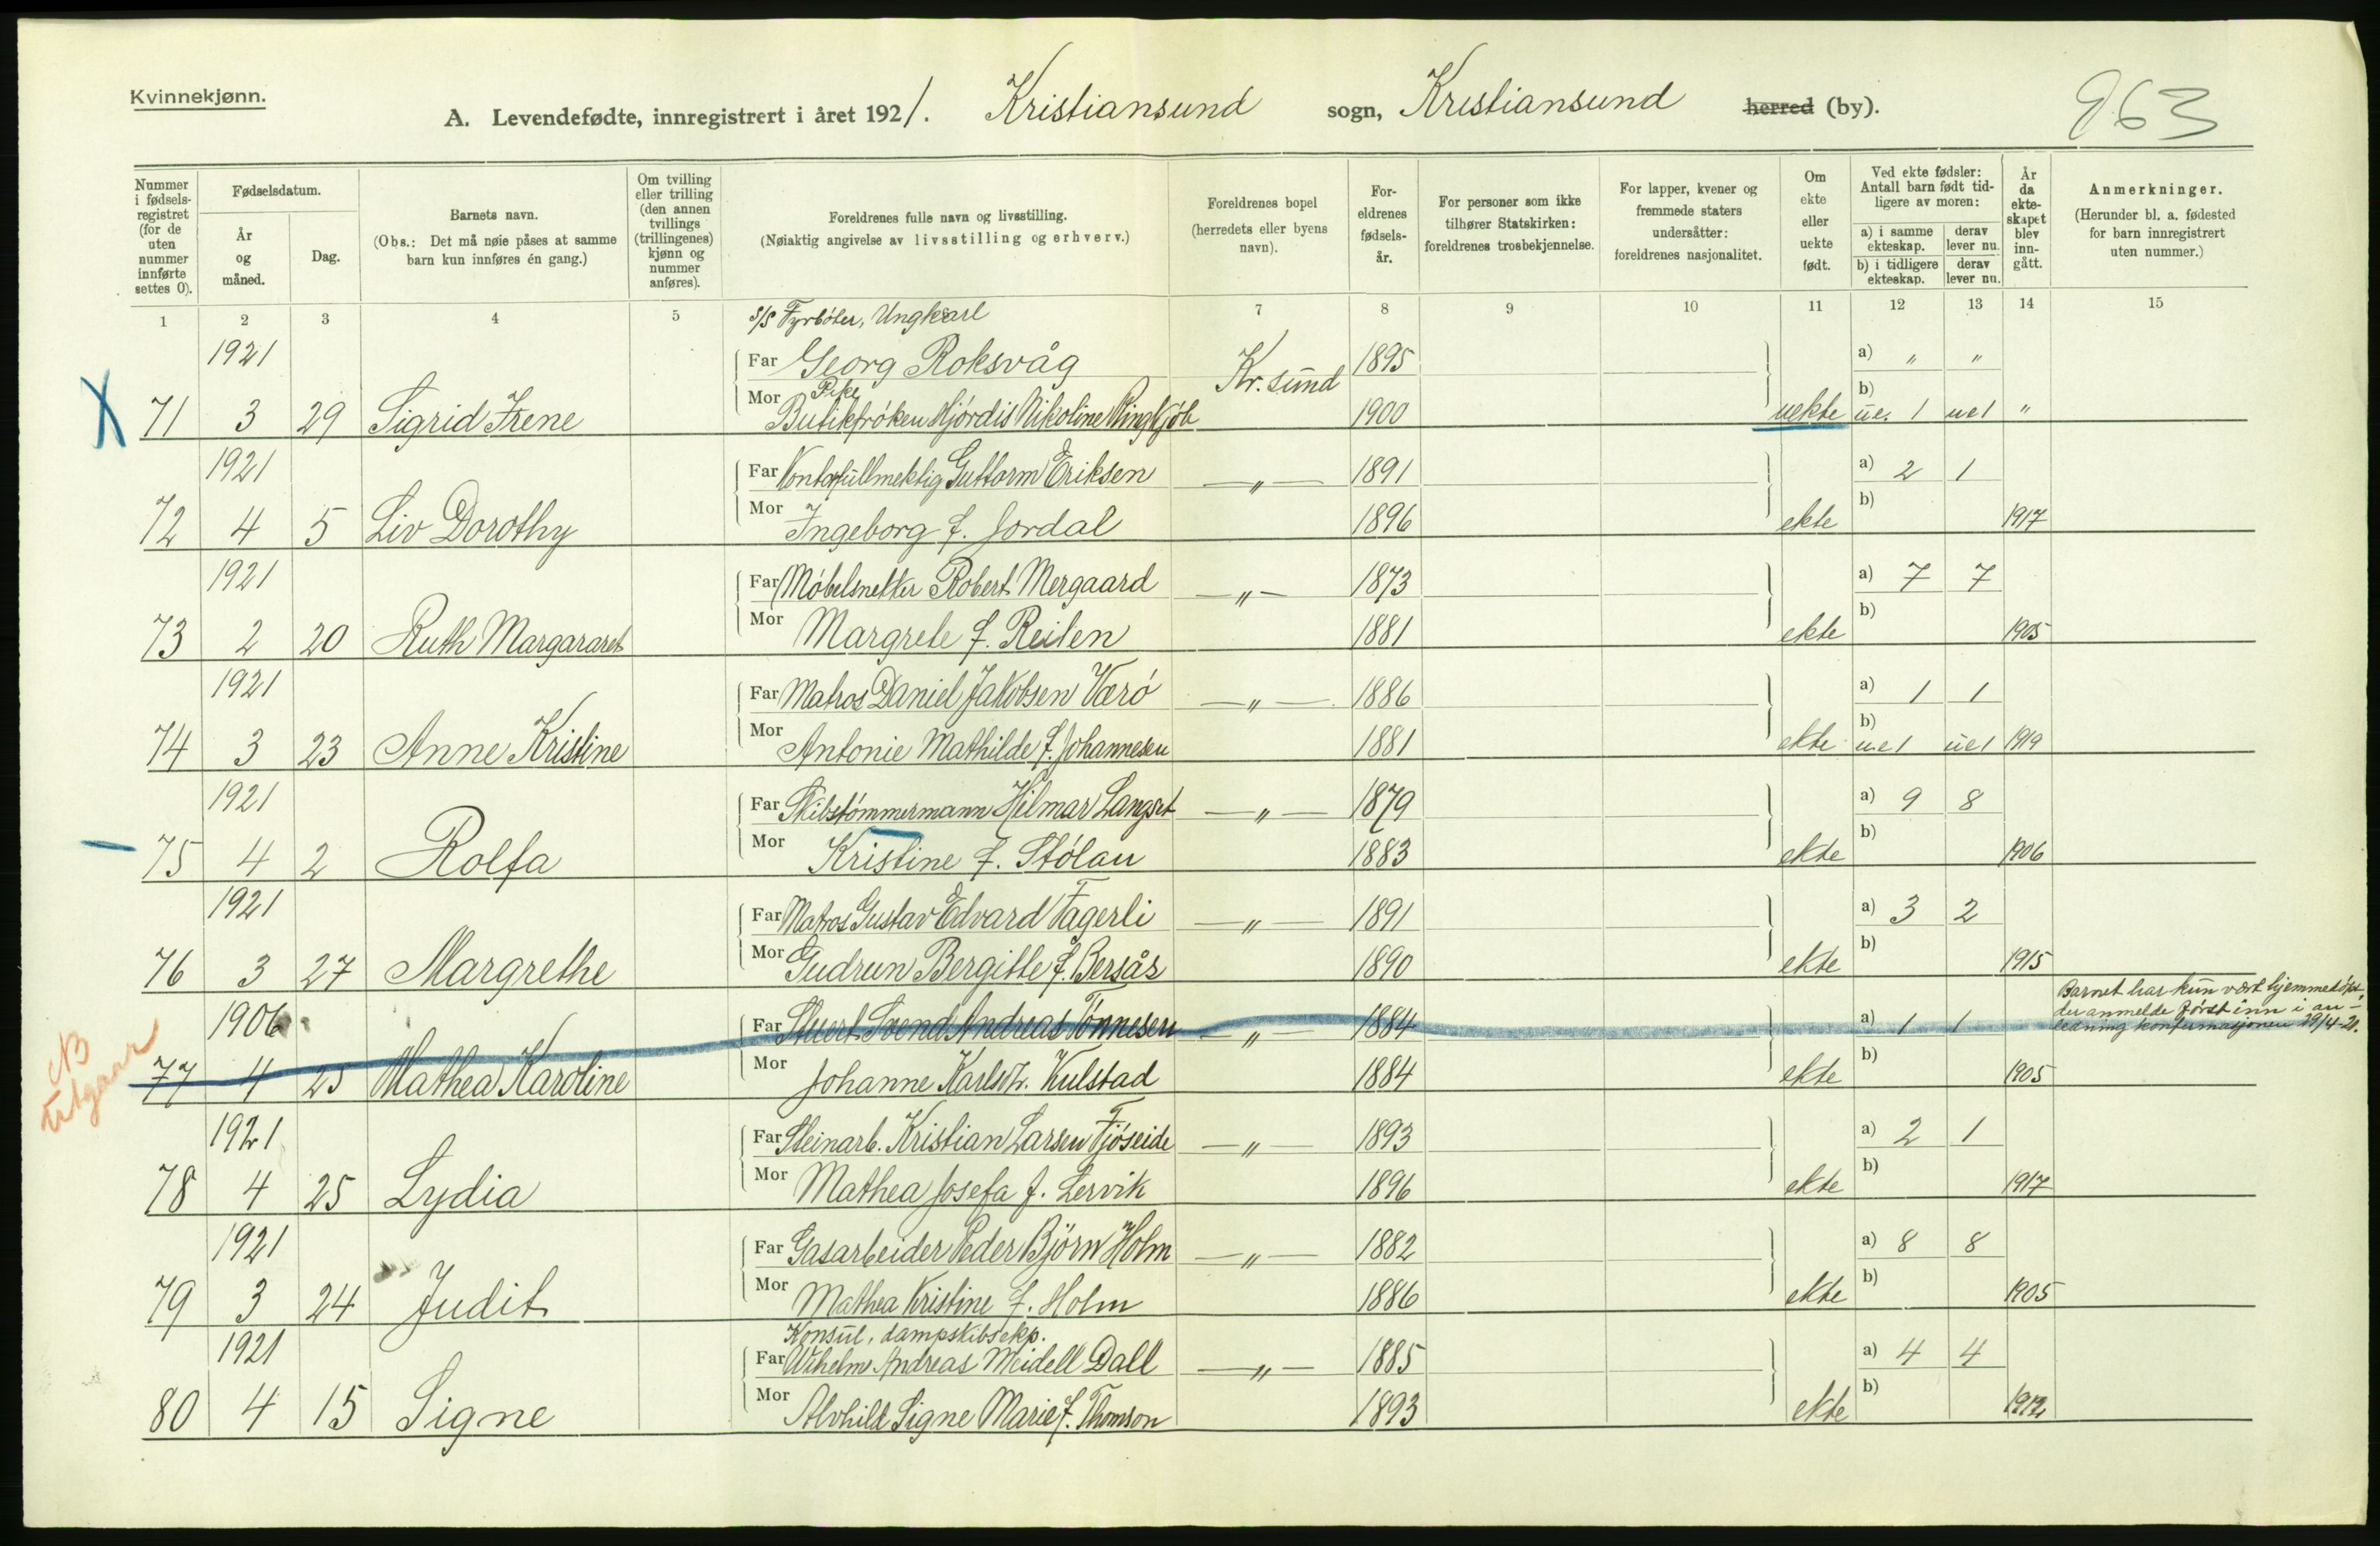 Kvinnekjønn.
A. Levendefødte, innregistrert i året 1921. Kristiansund sogn, Kristiansund herred (by). 963
Nummer i fødselsregistret (for de uten nummer innførte settes 0).
Fødselsdatum.
År og måned.
Dag.
Barnets navn.
(Obs.: Det må nøie påses at samme barn kun innføres én gang.)
Om tvilling eller trilling (den annen tvillings (trillingenes) kjønn og nummer anføres).
Foreldrenes fulle navn og livsstilling.
(Nøiaktig angivelse av livsstilling og erhverv.)
Foreldrenes bopel (herredets eller byens navn).
Foreldrenes fødselsår.
For personer som ikke tilhører Statskirken: foreldrenes trosbekjennelse.
For lapper, kvener og fremmede staters undersåtter: foreldrenes nasjonalitet.
Om ekte eller uekte født.
Ved ekte fødsler: Antall barn født tidligere av moren:
a) i samme ekteskap. derav lever nu.
b) i tidligere ekteskap. derav lever nu.
År da ekteskapet blev inngått.
Anmerkninger.
(Herunder bl. a. fødested for barn innregistrert uten nummer.)
1 2 3 4 5 7 8 9 10 11 12 13 14 15
s/s Fyrbøter, Ungkarl
1921 Far Georg Roksvåg Kr.sund 1895 a) " "
Pike
71 3 29 Sigrid Irene Mor Butikfrøken Hjördis Nikoline 1900 uekte b) ue. 1 ue 1 "
1921 Far Kontorfullmektig Guttorm Eriksen —"— 1891 a) 2 1
72 4 5 Liv Dorothy Mor Ingeborg f. Jordal 1896 ekte b) 1917
1921 Far Møbelsnekker Robert Mergaard —"— 1873 a) 7 7
73 2 20 Ruth Margararet Mor Margrete f. Reiten 1881 ekte b) 1905
1921 Far Matros Daniel Jakobsen Værö —"— 1886 a) 1 1
74 3 23 Anne Kristine Mor Antonie Mathilde f. Johannesen 1881 ekte b) ue 1 ue 1 1919
1921 Far Skibstömmermann Hilmar Langset —"— 1879 a) 9 8
75 4 2 Rolfa Mor Kristine f. Stölan 1883 ekte b) 1906
1921 Far Matros Gustav Edvard Fagerli —"— 1891 a) 3 2
76 3 27 Margrethe Mor Gudrun Bergitte f. Bersås 1890 ekte b) 1915
Barnet har kun vært hjemmedöpt,
der anmelde först inn i an-
ledning konfirmasjonen 29/4-21.
1906 Far Stuert Svend Andreas Tönnesen —"— 1884 a) 1 1
NB utgaar
77 4 25 Mathea Karoline Mor Johanne Karlsd. Kulstad 1884 ekte b) 1905
1921 Far Steinarb. Kristian Larsen Fjöseide —"— 1893 a) 2 1
78 4 25 Lydia Mor Mathea Josefa f. Lervik 1896 ekte b) 1917
1921 Far Gasarbeider Peder Björn Holm —"— 1882 a) 8 8
79 3 24 Judit Mor Mathea Kristine f. Holm 1886 ekte b) 1905
Konsul, dampskibsekp.
1921 Far Wilhelm Andreas Meidell Dall —"— 1885 a) 4 4
80 4 15 Signe Mor Alvhild Signe Marie f. Thomson 1893 ekte b) 1912